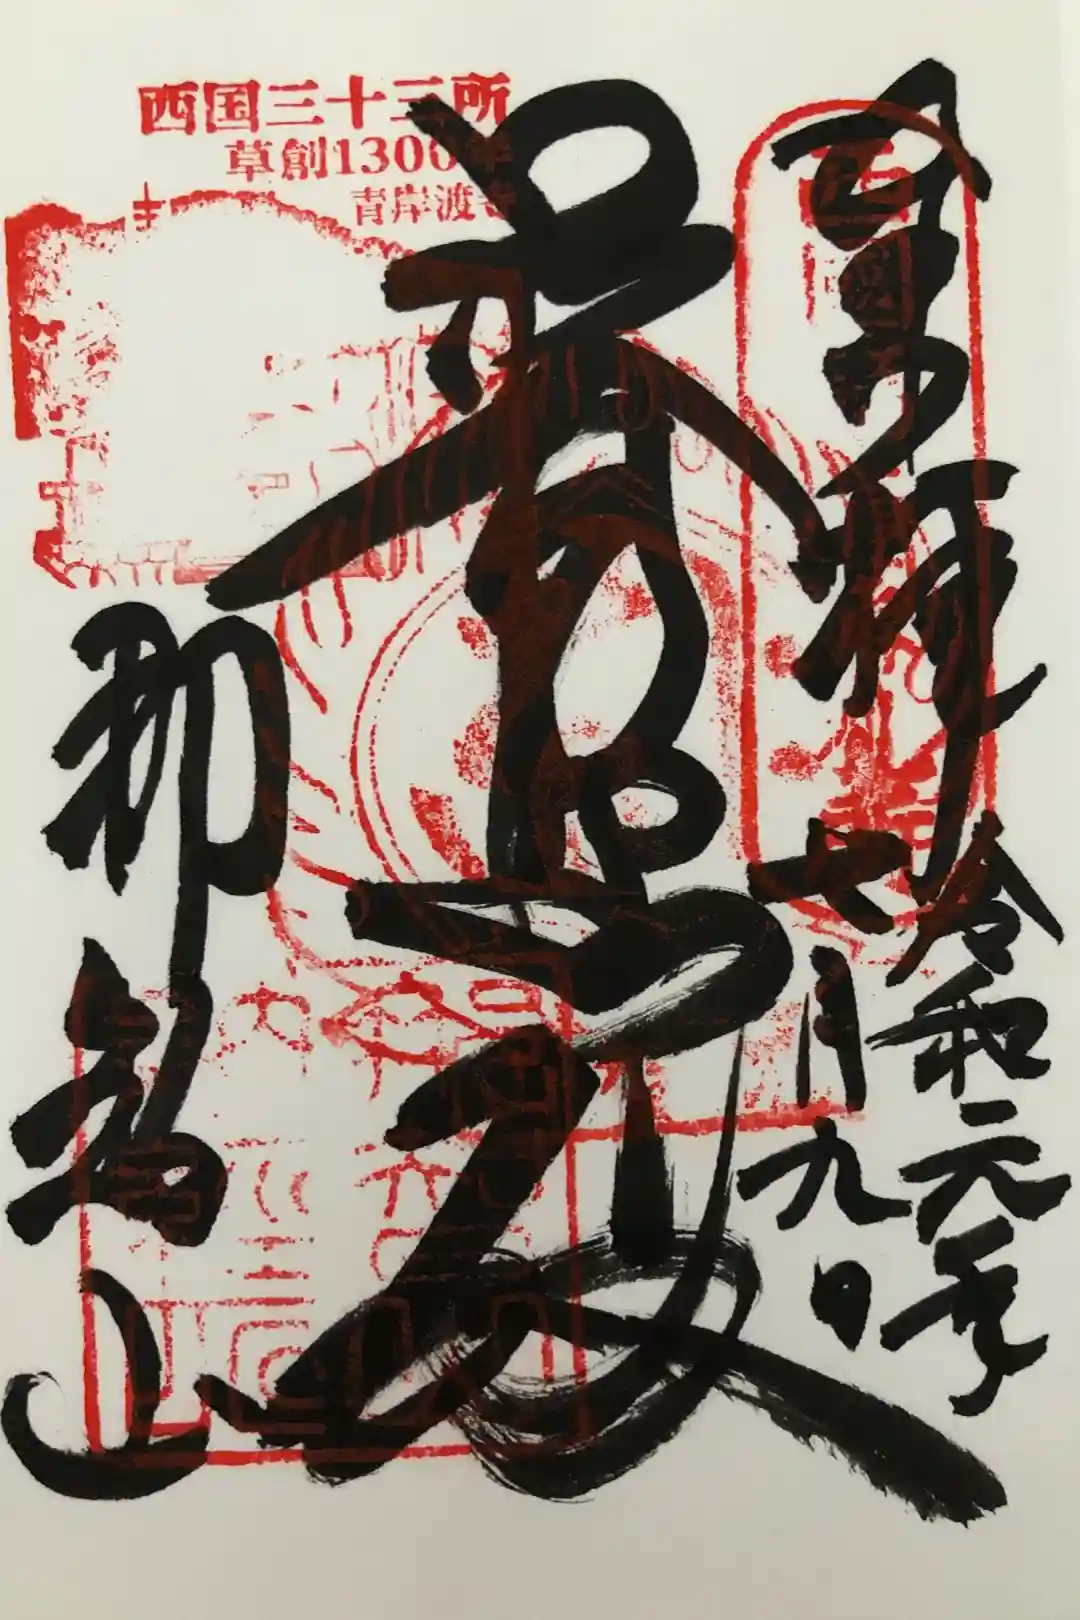 奉拝
令和元年
七月九日
普照殿
那智山
西国三十三所
草創1300年
青岸渡寺